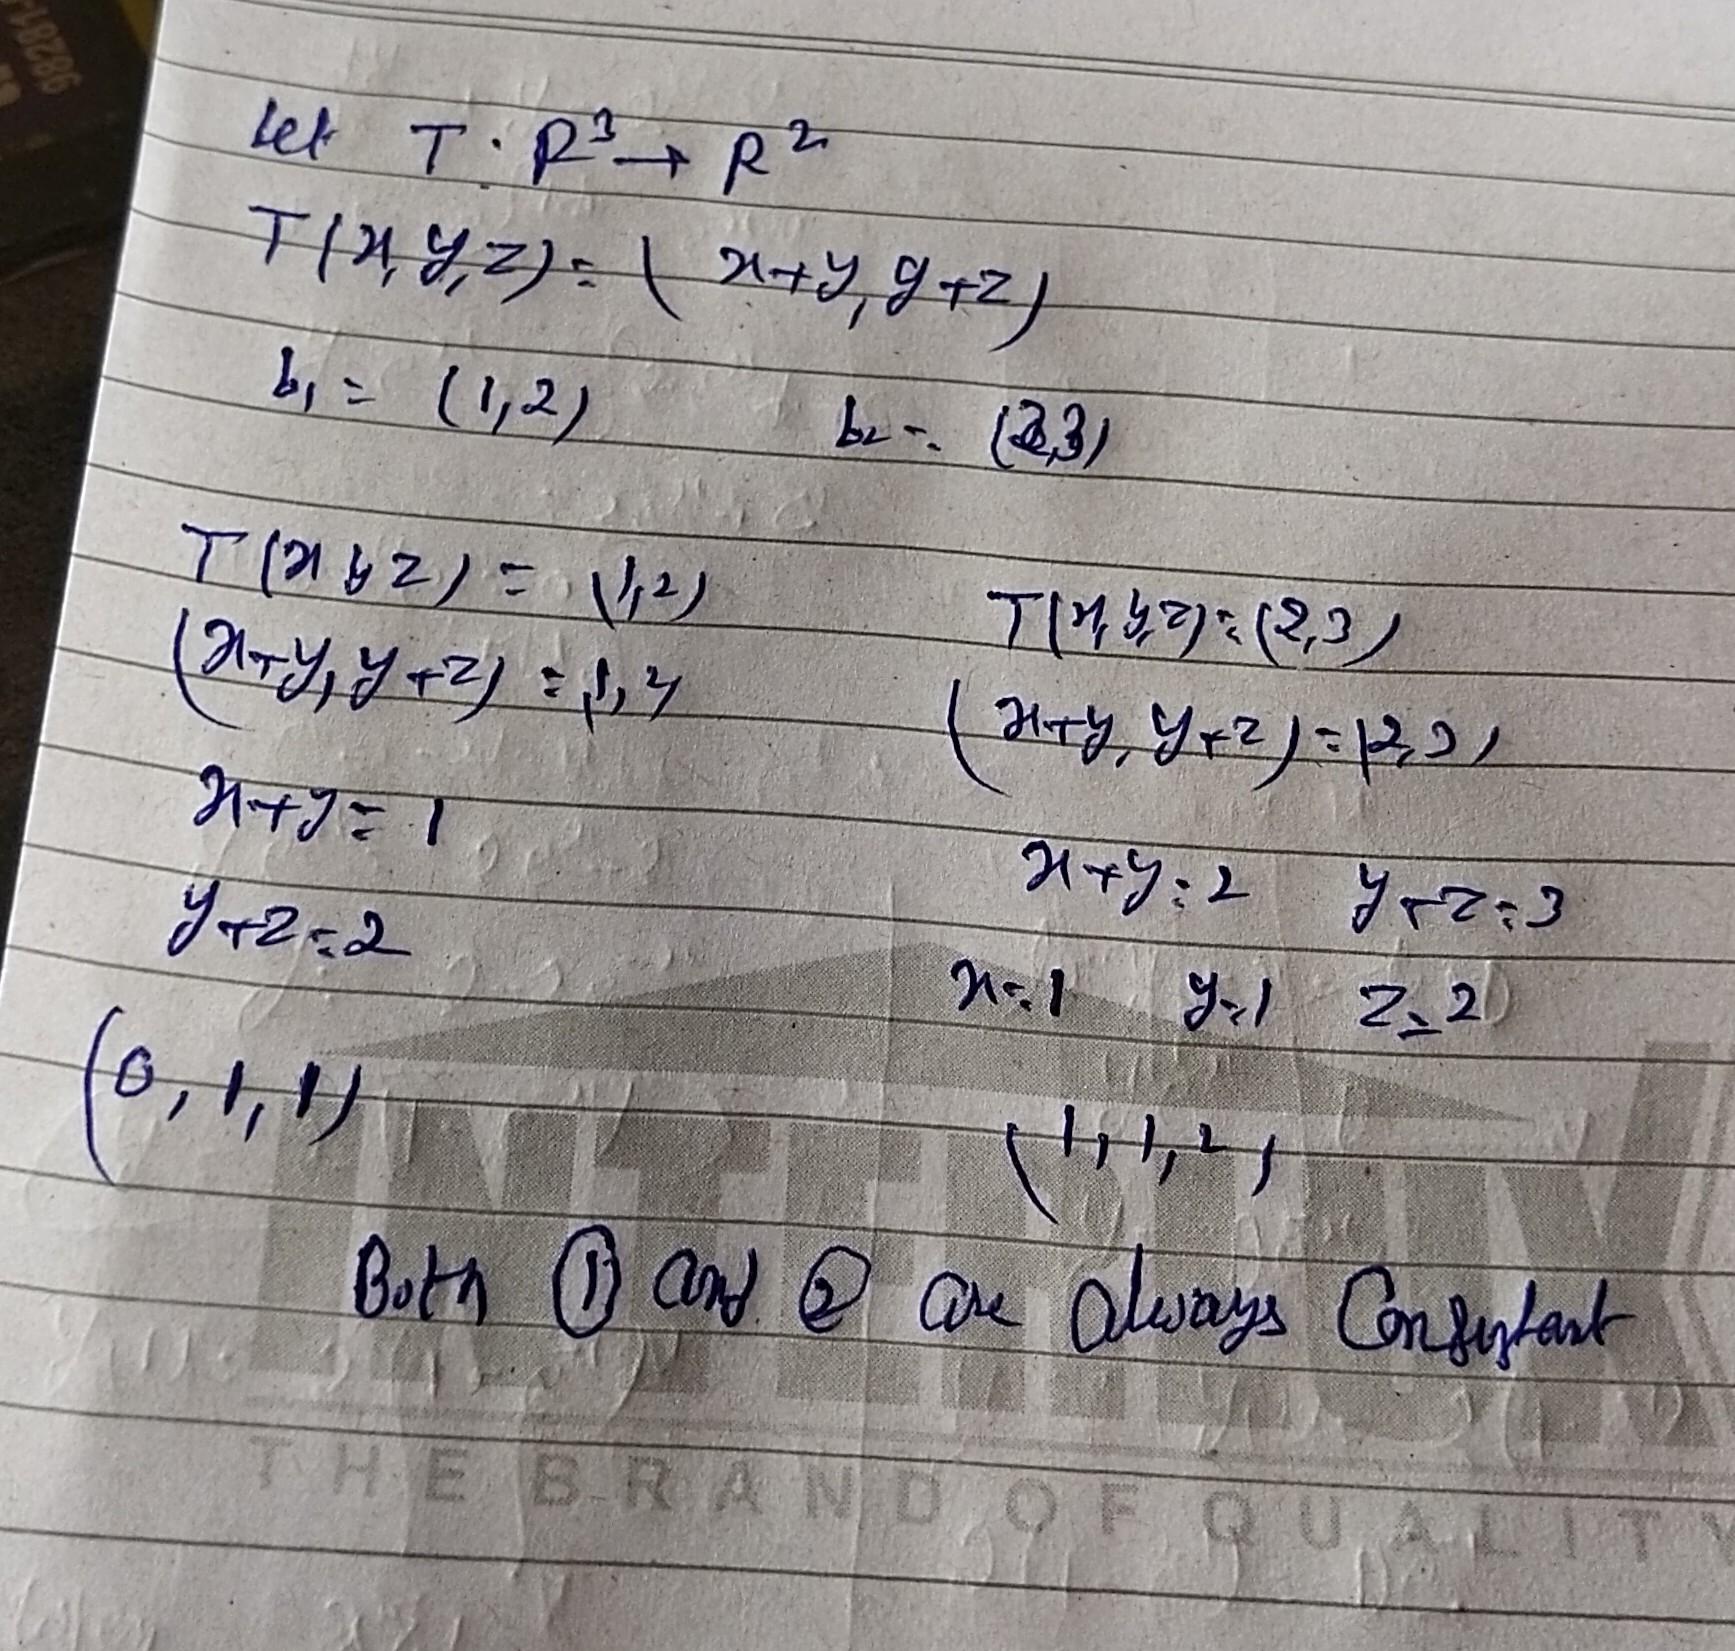 Let T : R³ → R²
T(x, y, z) = ( x+y, y+z)
b₁ = (1,2) b₂ = (2,3)
T(x y z) = (1,2)
T(x, y, z) = (2,3)
(x+y, y+z) = 1, 2
(x+y, y+z) = (2,3)
x+y = 1
x+y = 2 y+z = 3
y+z = 2
x = 1 y = 1 z = 2
(0, 1, 1)
(1, 1, 2)
Both ① and ② are always Consistant
THE BRAND OF QUALITY